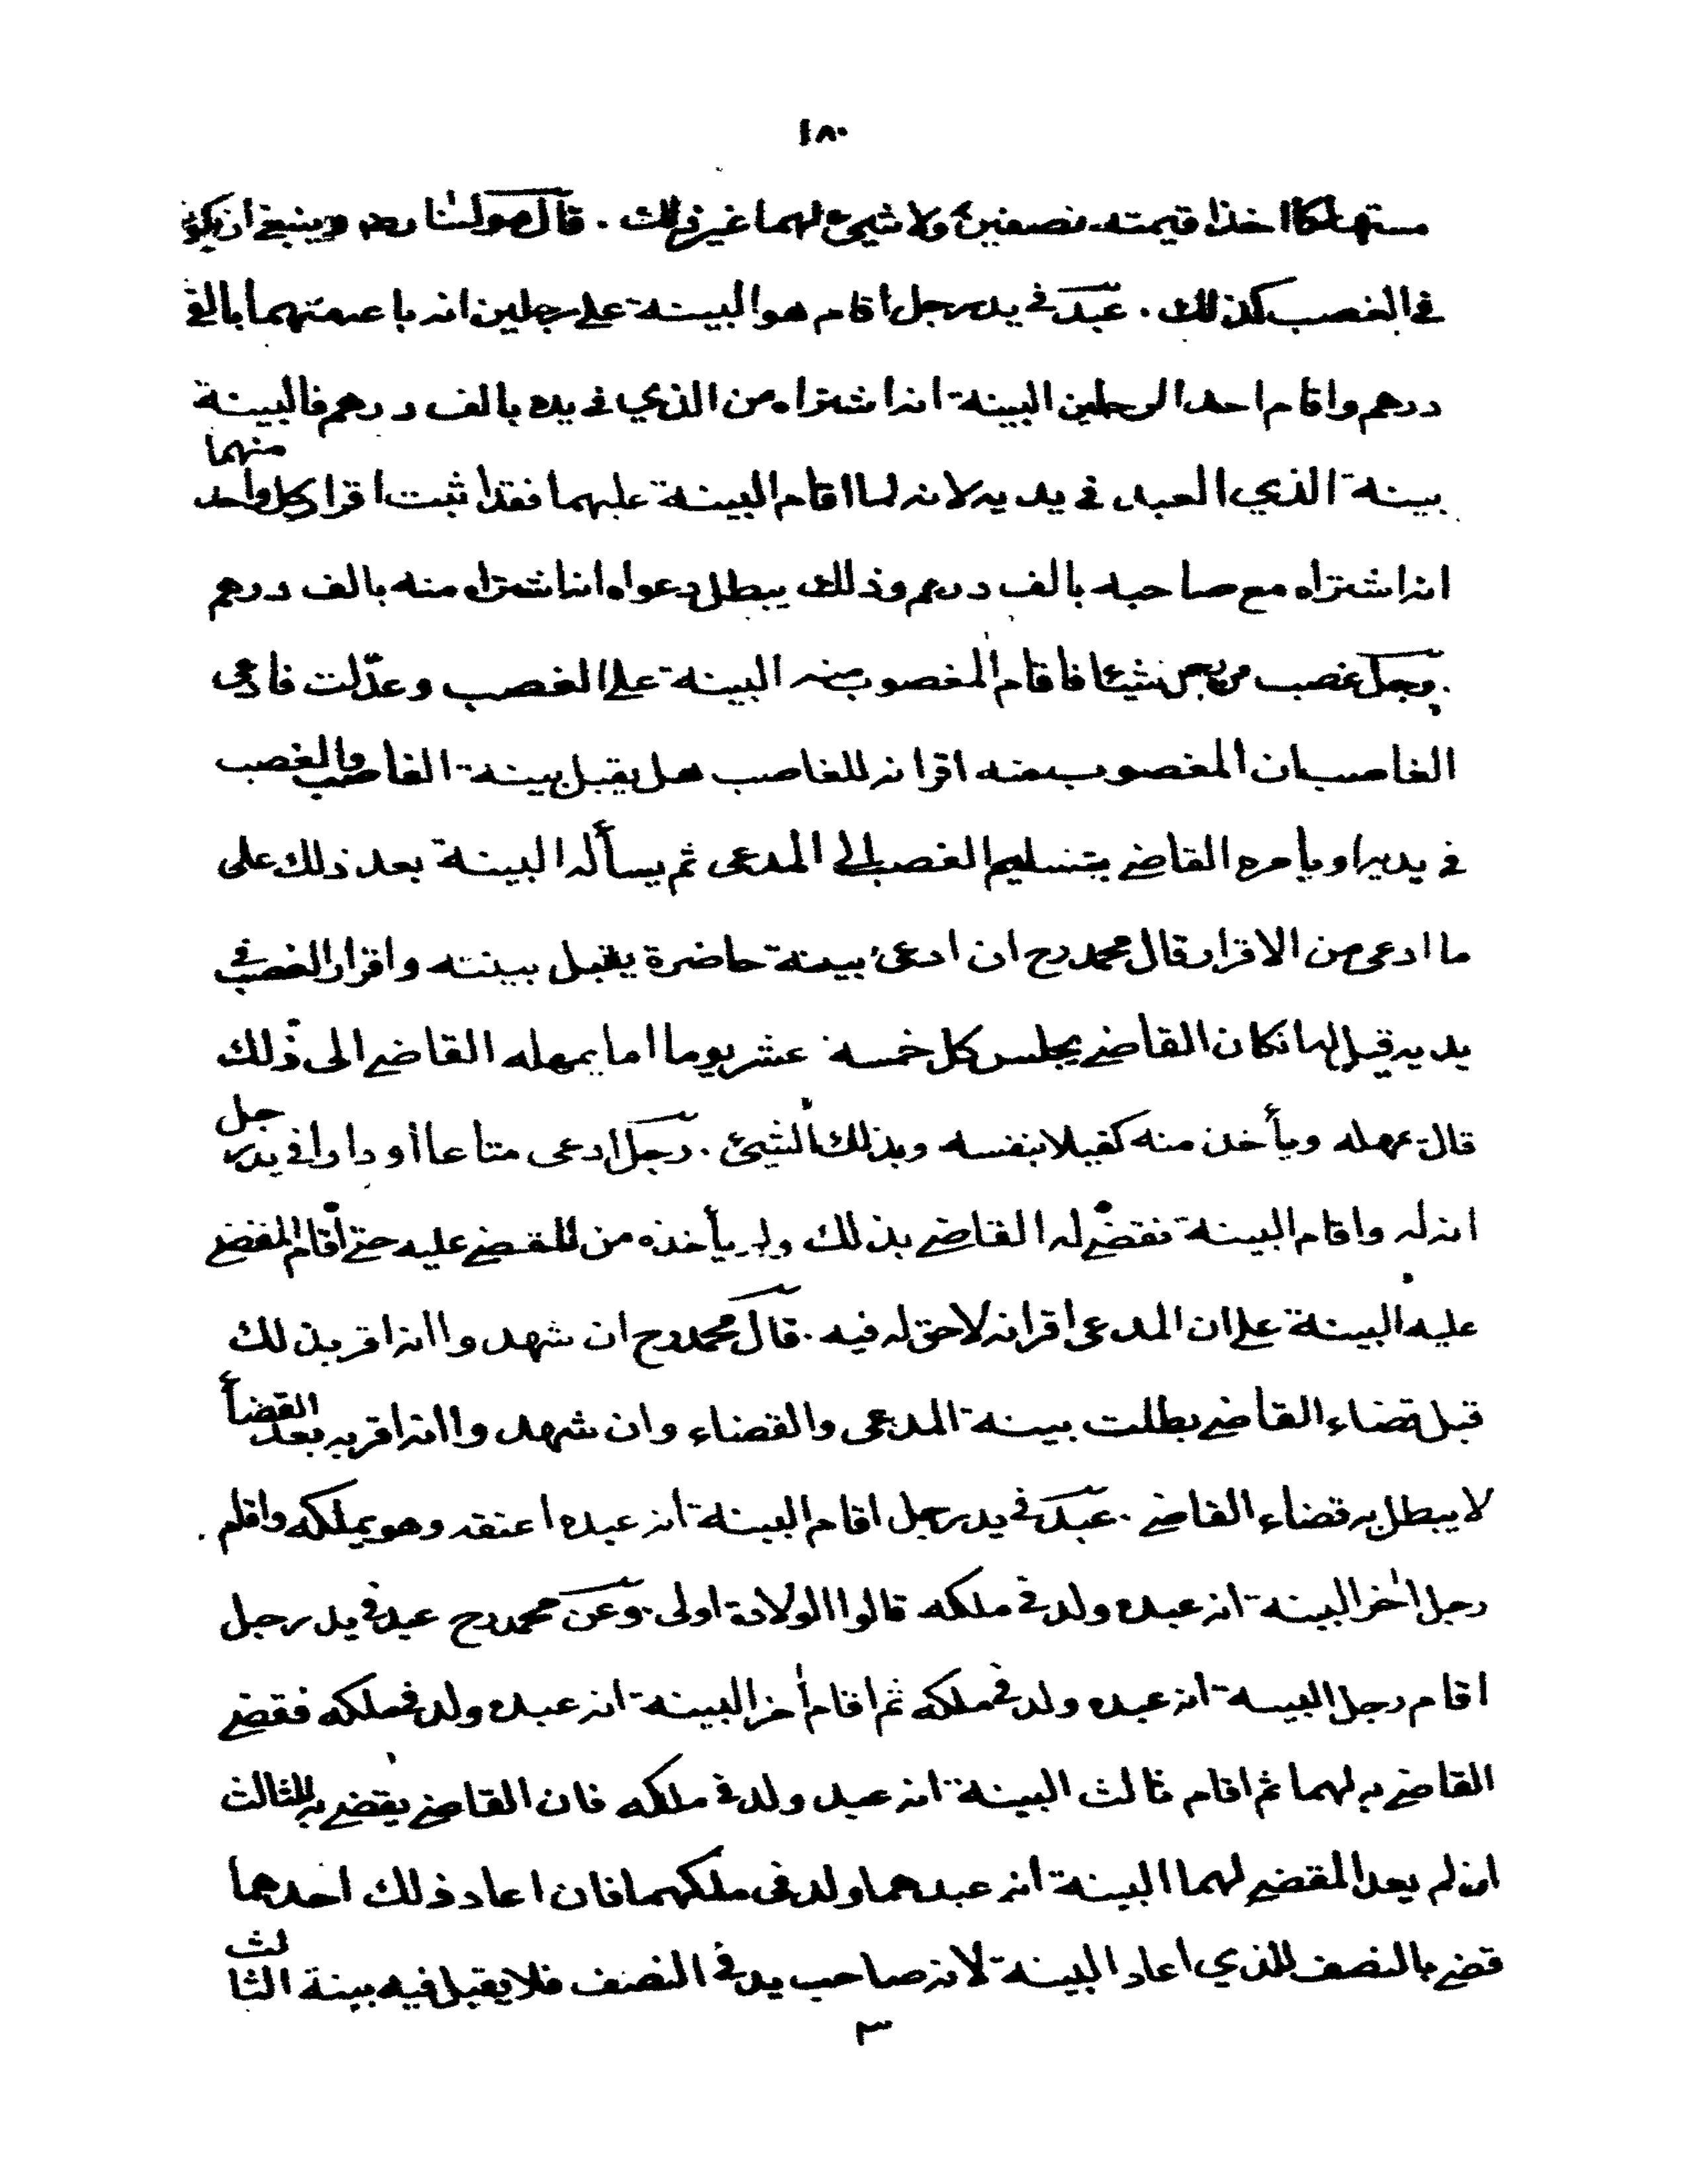 ١٨٠
مستهلكا اخذا قيمته نصفين ولا شيئ لهما غير ذلك . قال مولٰنا رضـ وينبغي ان يكو
في الغصب كذلك . عبد في يد رجل اقام هو البينة على رجلين انه باعه منهما بالف
درهم واقام احد الرجلين البينة انه اشتراه من الذي في يده بالف درهم فالبينة
بينة الذي العبد في يديه لانه لما اقام البينة عليهما فقد اثبت اقرار كل واحد منهما
انه اشتراه مع صاحبه بالف درهم وذلك يبطل دعواه انه اشتراه منه بالف درهم
. رجل غصب من رجل شيئا فاقام المغصوب منه البينة على الغصب وعدّلت فادعى
الغاصب ان المغصوب منه اقر انه للغاصب هل يقبل بينة الغاصب والغصب
في يديه او يأمره القاضي بتسليم الغصب الى المدعى ثم يسأله البينة بعد ذلك على
ما ادعى من الاقرار قال محمد رح ان ادعى بينة حاضرة يقبل بينته واقرار الغصب في
يديه قيل لها فكان القاضي يجلس كل خمسة عشر يوما اما يمهله القاضي الى ذلك
قال يمهله ويأخذ منه كفيلا بنفسه وبذلك الشيئ . رجل ادعى متاعا أو دارا في يد رجل
انه له واقام البينة فقضى له القاضي بذلك ولم يأخذه من المقضي عليه حتى اقام المقضي
عليه البينة على ان المدعى اقر انه لا حق له فيه . قال محمد رح ان شهدوا انه اقر بذلك
قبل قضاء القاضي بطلت بينة المدعى والقضاء وان شهدوا انه اقر به بعد القضأ
لا يبطل به قضاء القاضي . عبد في يد رجل اقام البينة انه عبده اعتقه وهو يملكه واقام .
رجل اٰخر البينة انه عبده ولد في ملكه قالوا الولادة اولى . وعن محمد رح عبد في يد رجل
اقام رجل البينة انه عبده ولد في ملكه ثم اقام اٰخر البينة انه عبده ولد في ملكه فقضى
القاضي به لهما ثم اقام ثالث البينة انه عبد ولد في ملكه فان القاضي يقضي به للثالث
ان لم يعد المقضي لهما البينة انه عبدهما ولد في ملكهما فان اعاد ذلك احدهما
قضي بالنصف للذي اعاد البينة لانه صاحب يد في النصف فلا يقبل فيه بينة الثالث